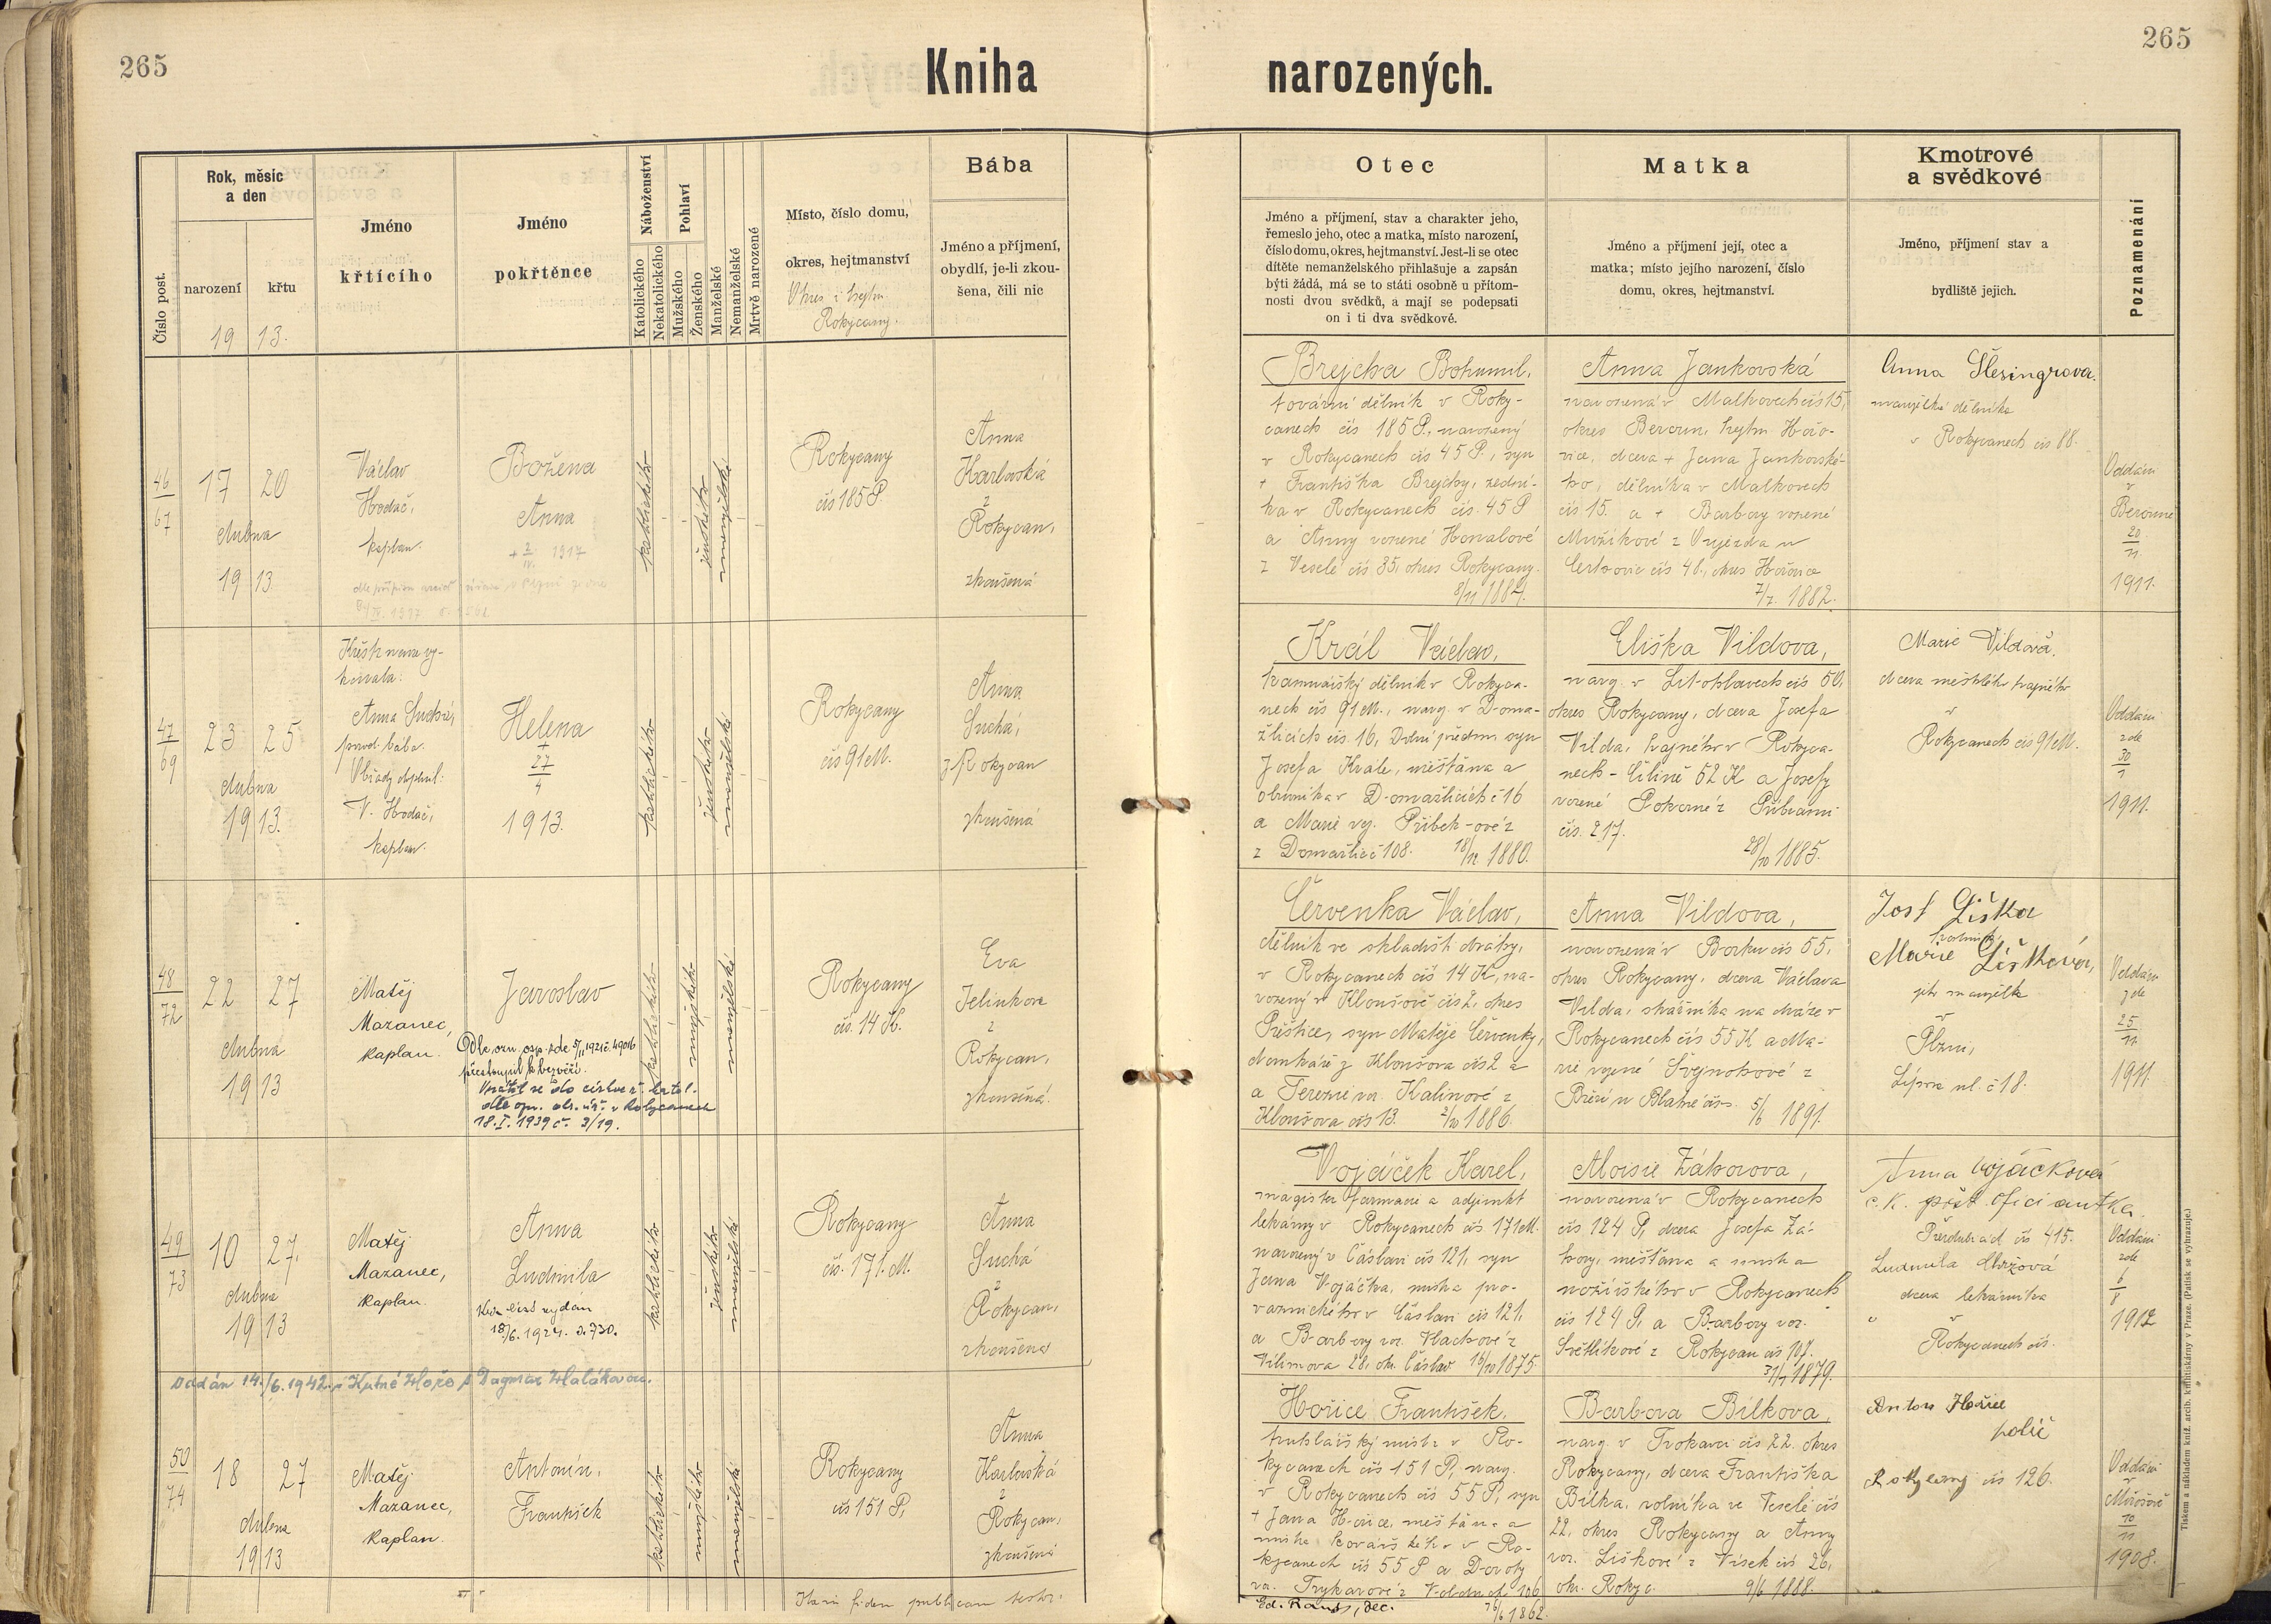 265
Kniha
narozených.
265
Číslo post.
Rok, měsíc
a den
narození
křtu
19 13.
Jméno
křtícího
Jméno
pokřtěnce
Náboženství
Katolického
Nekatolického
Pohlaví
Mužského
Ženského
Manželské
Nemanželské
Mrtvě narozené
Místo, číslo domu,
okres, hejtmanství
Okres i hejtm.
Rokycany.
Bába
Jméno a příjmení,
obydlí, je-li zkou-
šena, čili nic
Otec
Jméno a příjmení, stav a charakter jeho,
řemeslo jeho, otec a matka, místo narození,
číslo domu, okres, hejtmanství. Jest-li se otec
dítěte nemanželského přihlašuje a zapsán
býti žádá, má se to státi osobně u přítom-
nosti dvou svědků, a mají se podepsati
on i ti dva svědkové.
Matka
Jméno a příjmení její, otec a
matka; místo jejího narození, číslo
domu, okres, hejtmanství.
Kmotrové
a svědkové
Jméno, příjmení stav a
bydliště jejich.
Poznamenání
46
67
17 20
dubna
19 13.
Václav
Hodač,
kaplan.
Božena
Anna
1917
katolického
ženského
manželské
Rokycany
čís 185 P
Anna
Karlovská
z
Rokycan,
zkoušená
Brejcha Bohumil,
tovární dělník v Roky-
canech čís 185 P., narozený
v Rokycanech čís 45 P., syn
+ Františka Brejchy, zední-
ka v Rokycanech čís. 45 P
a Anny rozené Honalové
z Veselé čís 35, okres Rokycany.
Anna Jankovská
narozená v Malkovech čís 15,
okres Beroun, hejtm Hořo-
vice, dcera + Jana Jankovské-
ho, dělníka v Malkovech
čís 15. a + Barbory rozené
Mužíkové z Újezda u
Cerhovic čís 46., okres Hořovice
7/7. 1882.
Anna Šlesingrova.
manželka dělníka
v Rokycanech čís 88.
Oddáni
v
Berouně
20
11
1911.
47
69
23 25
dubna
19 13.
Křest nouze vy-
konala:
Anna Suchá,
porod. bába.
Obřady doplnil:
V. Hodač,
kaplan.
Helena
+
27
4
1913.
katolického
ženského
manželské
Rokycany
čís 91 M.
Anna
Suchá,
z Rokycan
zkoušená
Král Václav,
neck čís 91 M., naroz. v Doma-
žlicích čís. 16, Dolní předm. syn
Josefa Krále, měšťana a
obuvníka v Domažlicích č 16
a Marie roz. Přibek-ové z
z Domažlic č 108. 18/12 1880.
Eliška Vildova,
naroz. v Litohlavech čís 50,
okres Rokycany, dcera Josefa
Vilda, hajného v Rokyca-
nech - Čilině 52 K a Josefy
rozené Pokorné z Příbrami
čís. 217.
28/10 1885.
Marie Vildová.
dcera městského hajného
v
Rokycanech čís 91 M.
Oddáni
zde
30
1
1911.
48
72
22 27
dubna
19 13
Matěj
Mazanec,
kaplan.
Jaroslav
přestoupil k bezvěří.
Vrátil se do církve ř. katol.
dle opr. okr. úř. v Rokycanech
18. I. 1939 č. 3/19.
katolického
mužského
manželské
Rokycany
čís. 14 K.
Eva
Jelínkova
z
Rokycan,
zkoušená.
Červenka Václav,
dělník ve skladišti dráhy,
v Rokycanech čís 14 K, na-
rozený v Kloušově čís 2, okres
Přeštice, syn Matěje Červenky,
domkáře z Kloušova čís 2 a
a Terezie roz. Kalinové z
Kloušova čís 13. 2/10 1886.
Anna Vildova,
narozená v Borku čís 55,
okres Rokycany, dcera Václava
Vilda, strážníka na dráze v
Rokycanech čís 55 K a Ma-
rie rozené Švejnohové z
5/6 1891.
Josf Liška
Marie Lišková,
jeho manželka
v
Plzni,
Lipová ul. č 18.
Oddáni
zde
25
11
1911.
49
73
10 27.
dubna
19 13
Matěj
Mazanec,
kaplan.
Anna
Ludmila
Křestní list vydán
18/6. 1924. č. 730.
katolického
ženského
manželské
Rokycany
čís. 171. M.
Anna
Suchá
z
Rokycan,
zkoušená
Vojáček Karel,
magister farmacie a adjunkt
lekárny v Rokycanech čís 171 M.
narozený v Čáslavi čís 121, syn
Jana Vojáčka, mistra pro-
vaznického v Čáslavi čís 121,
a Barbory roz. Vlachové z
Vilimova 28, okr. Čáslav 16/10 1875.
Aloisie Záhorova,
narozená v Rokycanech
čís 124 P, dcera Josefa Zá-
hory, měšťana a mistra
nožířského v Rokycanech
čís 124 P, a Barbory roz.
Světlíkové z Rokycan čís 107.
31/7 1879.
Anna Vojáčková
c. k. pošt. oficiantka.
Pardubice čís 415.
dcera lekárníka
v
Rokycanech čís.
Oddáni
zde
6
8
1912
Oddán 14./6. 1942 v Kutné Hoře s Dagmar Halákovou.
50
74
18 27
dubna
19 13
Matěj
Mazanec,
kaplan.
Antonín,
František
katolického
mužského
manželské
Rokycany
čís 151 P.
Anna
Karlovská
z
Rokycan,
zkoušená
Hořice František,
truhlářský mistr v Ro-
kycanech čís 151 P, naroz.
v Rokycanech čís 55 P, syn
+ Jana Hořice, měšťana a
mistra kovářského v Ro-
kycanech čís 55 P a Doroty
Barbora Bílkova,
naroz. v Trokavci čís 22. okres
Rokycany, dcera Františka
Bílka, rolníka ve Veselé čís
22, okres Rokycany a Anny
roz. Liškové z Vísek čís 26,
okr. Rokyc. 9/6 1888.
Anton Hořice
polič
Rokycany čís 126.
Oddáni
v
Mirošově
10
11
1908.
In fidem publicam testor:
Ed. Rauš, dec.
Tiskem a nákladem kníž. arcib. knihtiskárny v Praze. (Patisk se vyhrazuje.)